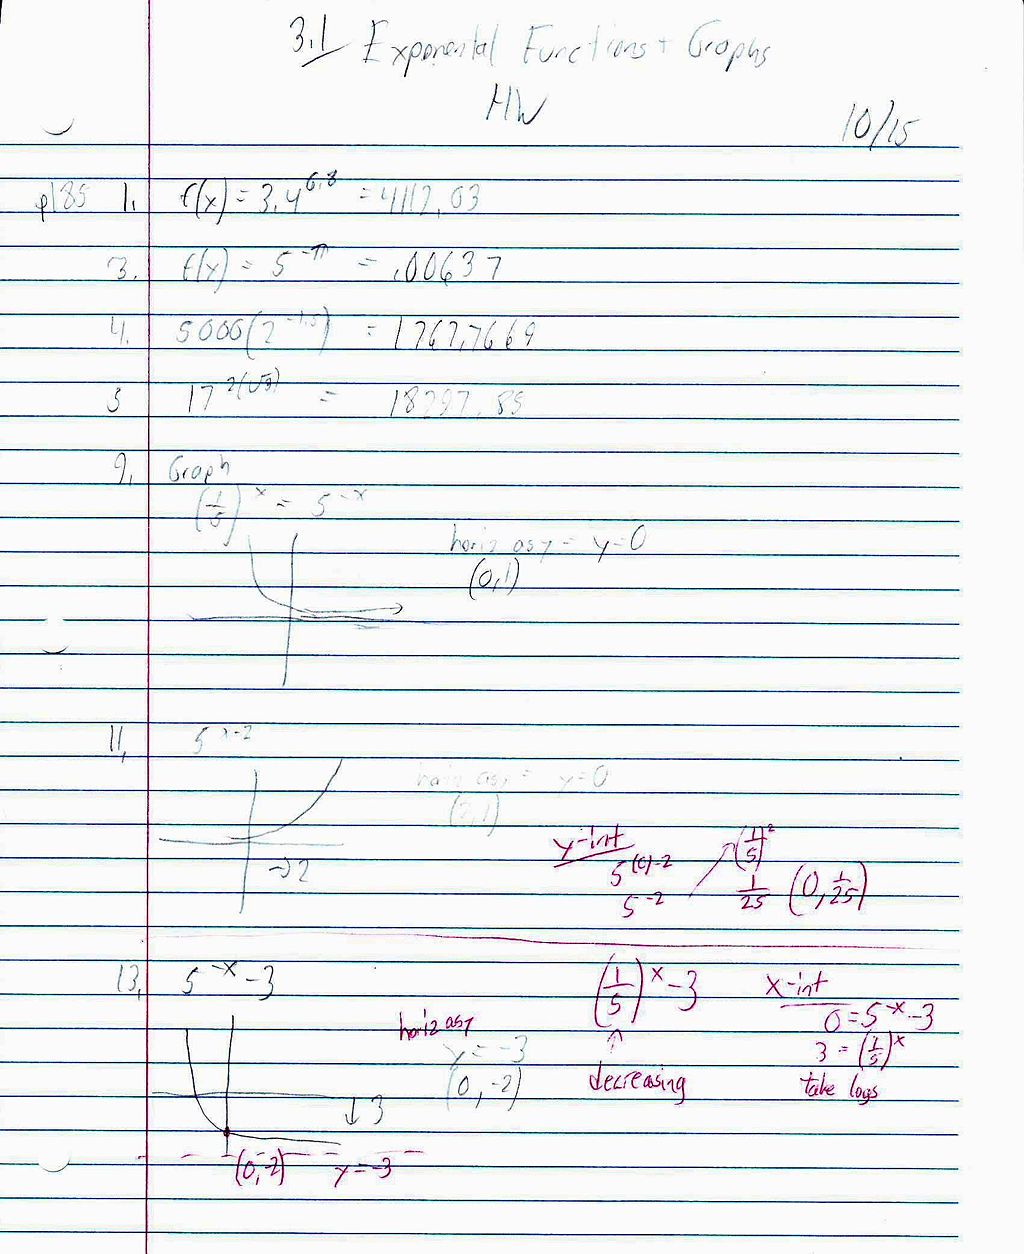 3.1 Exponental Functions + Graphs
HW
10/15
p185 1. f(x) = 3.4^6.8 = 4112.03
3. f(x) = 5^-π = .00637
4. 5000(2^-1.5) = 1767.7669
5 17^2(√3) = 18297.85
9. Graph
(1/5)^x = 5^-x
horiz asy = y=0
(0,1)
11. 5^x-2
horiz asy = y=0
(2,1)
→2
y-int
5^(0)-2
5^-2
(1/5)^2
1/25 (0, 1/25)
13. 5^-x - 3
horiz asy
y = -3
(0, -2)
↓3
(0,-2) y = -3
(1/5)^x - 3
↑
decreasing
x-int
0 = 5^-x - 3
3 = (1/5)^x
take logs